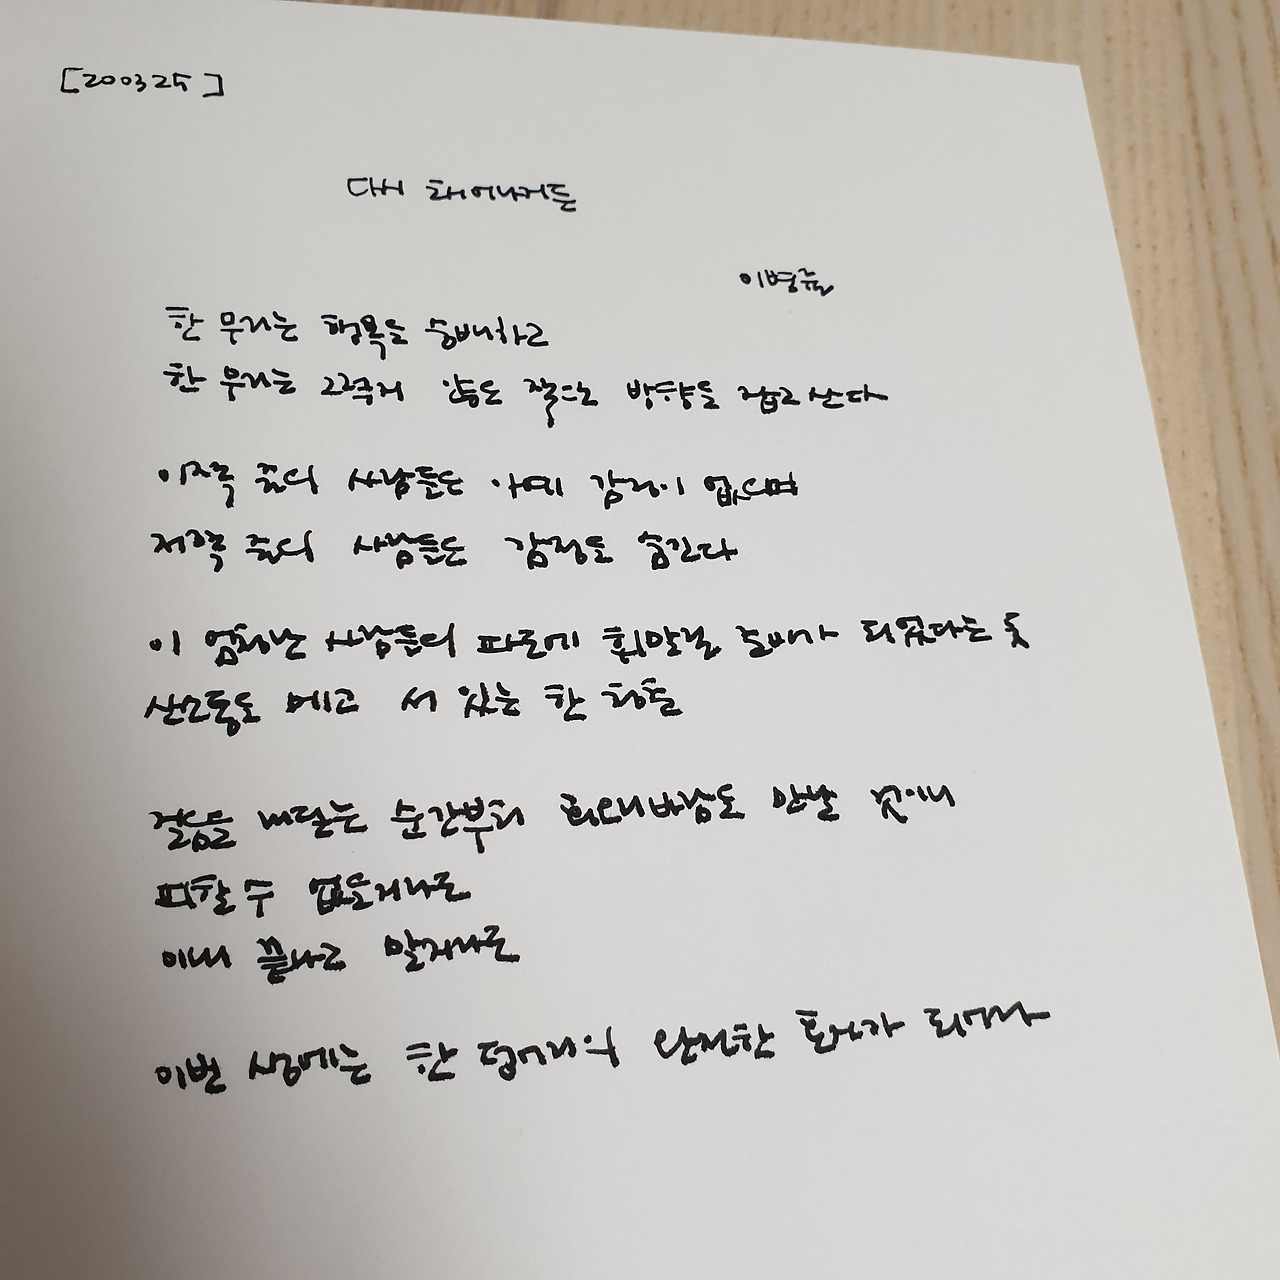 [200325]
다시 태어나거든
이병률
한 무리는 행복을 숭배하고
한 무리는 그렇지 않은 쪽으로 방향을 잡고 산다
이쪽 줄의 사람들은 아예 감정이 없으며
저쪽 줄의 사람들은 감정을 숨긴다
이 엄청난 사람들의 파도에 휘말릴 준비가 되었다는 듯
산소통도 메고 서 있는 한 청춘
걸음을 내딛는 순간부터 회오리바람도 만날 것이니
피할 수 없을지니라도
이내 끝나고 말지라도
이번 생에는 한 덩어리의 완전한 회사가 되어라